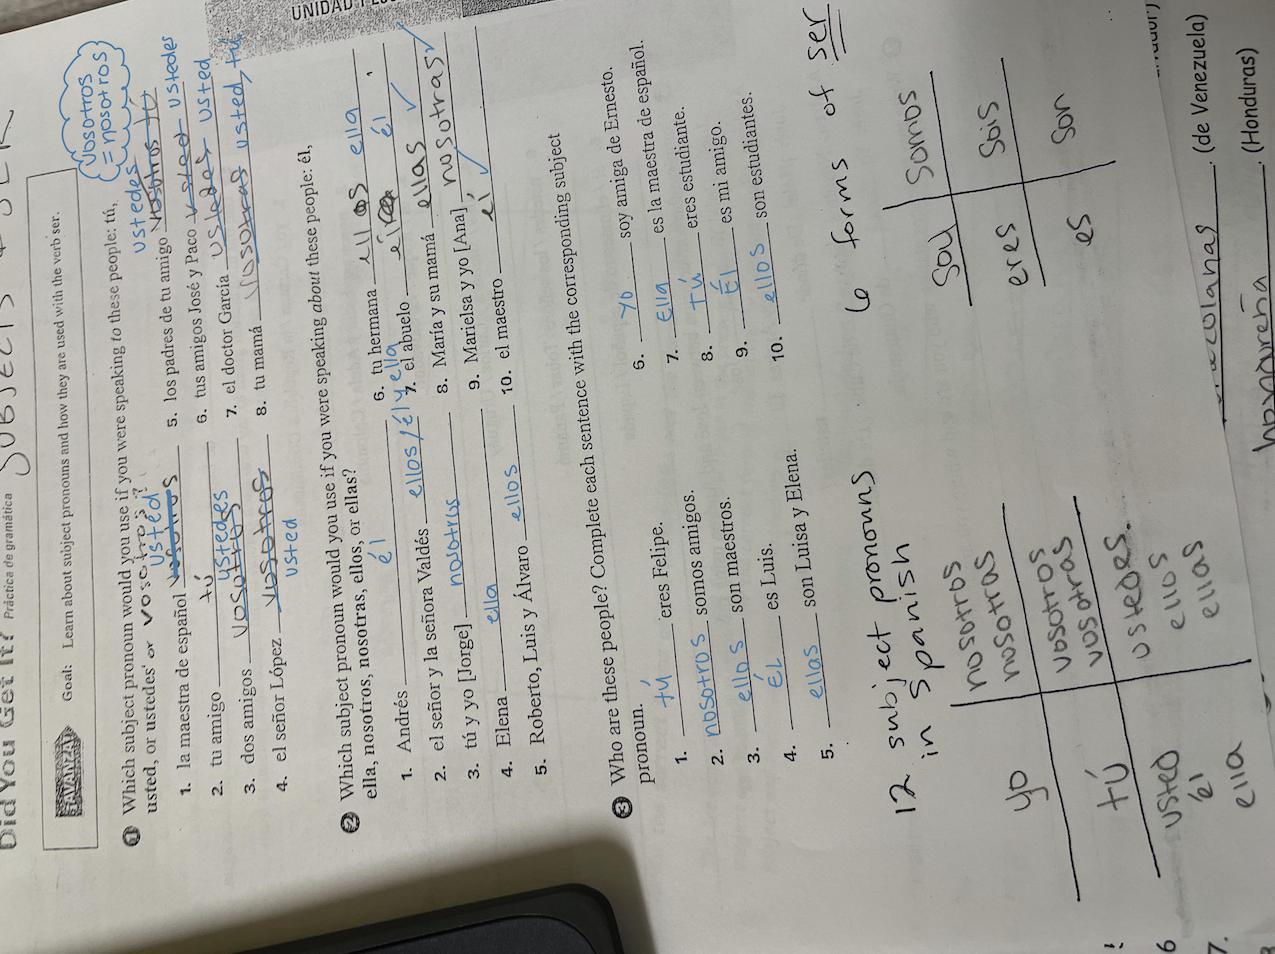 SUBJECTS + SER
Did You Get It? Práctica de gramática
UNIDAD 1
¡AVANZA! Goal: Learn about subject pronouns and how they are used with the verb ser.
vosotros
= nosotros
1 Which subject pronoun would you use if you were speaking to these people: tú,
usted, or ustedes? or vosotros?
usted
1. la maestra de español vosotros
2. tu amigo tú
ustedes
3. dos amigos vosotros
4. el señor López vosotros
usted
ustedes
5. los padres de tu amigo vosotros tú ustedes
6. tus amigos José y Paco usted ustedes
7. el doctor García ustedes usted
8. tu mamá vosotras usted, tú
2 Which subject pronoun would you use if you were speaking about these people: él,
ella, nosotros, nosotras, ellos, or ellas?
él
1. Andrés
2. el señor y la señora Valdés ellos/él y ella
3. tú y yo [Jorge] nosotros
4. Elena ella
5. Roberto, Luis y Álvaro ellos
6. tu hermana ellos ella
7. el abuelo él
8. María y su mamá ellas
9. Marielsa y yo [Ana] nosotras
10. el maestro él
3 Who are these people? Complete each sentence with the corresponding subject
pronoun.
1. tú eres Felipe.
2. nosotros somos amigos.
3. ellos son maestros.
4. ÉL es Luis.
5. ellas son Luisa y Elena.
6. Yo soy amiga de Ernesto.
7. Ella es la maestra de español.
8. Tú eres estudiante.
9. Él es mi amigo.
10. ellos son estudiantes.
12 subject pronouns
in spanish
yo nosotros
nosotras
tú vosotros
vosotras
usted ustedes.
él ellos
ella ellas
6 forms of ser
soy somos
eres sois
es son
(de Venezuela)
(Honduras)
hondureña
6
7.